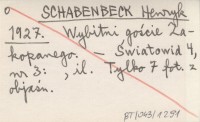 SCHABENBECK Henryk
1927. Wybitni goście Za-
kopanego. – Światowid 4,
nr 3: , il. Tylko 7 fot. z
objaśn.
BT/043/1291